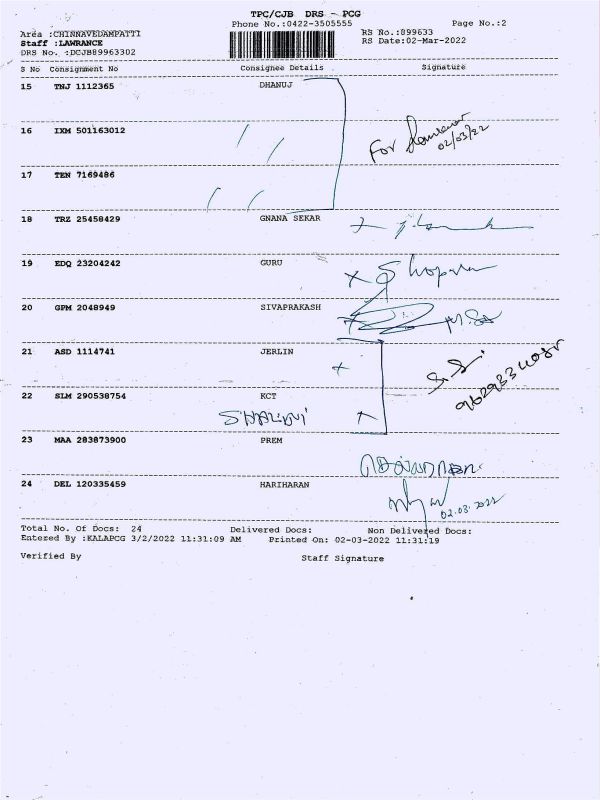 TPC/CJB DRS - PCG
Phone No.:0422-3505555 Page No.:2
Area :CHINNAVEDAMPATTI RS No.:899633
Staff :LAWRANCE RS Date:02-Mar-2022
DRS No. :DCJB89963302
S No Consignment No Consignee Details Signature
15 TNJ 1112365 DHANUJ
For
02/03/22
16 IXM 501163012
17 TEN 7169486
18 TRZ 25458429 GNANA SEKAR
19 EDQ 23204242 GURU
20 GPM 2048949 SIVAPRAKASH
21 ASD 1114741 JERLIN
22 SLM 290538754 KCT
SHALINI
23 MAA 283873900 PREM
24 DEL 120335459 HARIHARAN
02.03.2022
Total No. Of Docs: 24 Delivered Docs: Non Delivered Docs:
Entered By :KALAPCG 3/2/2022 11:31:09 AM Printed On: 02-03-2022 11:31:19
Verified By Staff Signature